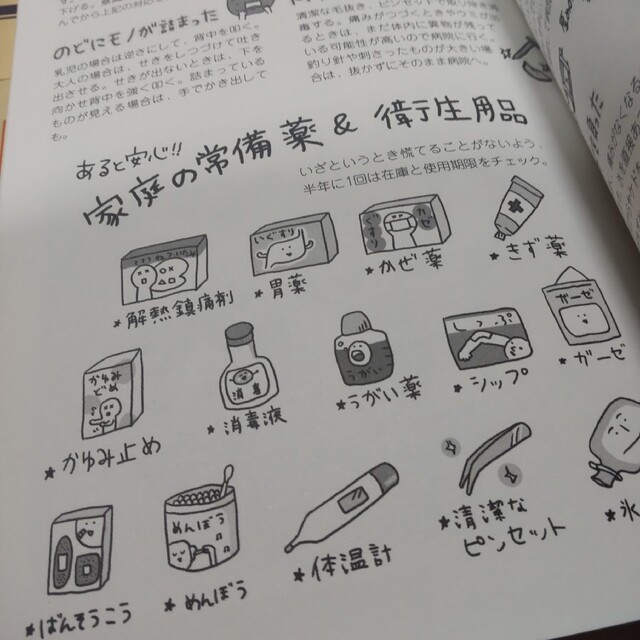 下げる。
んでから上記の対応
のどにモノが詰まった
乳児の場合は逆さにして、背中を叩く。
大人の場合は、せきをしつづけて吐き
出させる。せきが出ないときは、下を
向かせ背中を強く叩く。詰まっている
ものが見える場合は、手でかき出して
も。
清潔な毛抜き、ピンセットで
毒する。痛みがつづくときやウミが
るときは、まだ体内に異物が
いる可能性が高いので病院に行く。
釣り針や刺さったものが大きい場
合は、抜かずにそのまま病院へ。
あると安心!!
家庭の常備薬 & 衛生用品
いざというとき慌てることがないよう、
半年に1回は在庫と使用期限をチェック。
いぐすり
かぜ
ぐすり
*解熱鎮痛剤
*胃薬
*かぜ薬
*きず薬
かゆみ
どめ
消毒
うがい
しっぷ
ガーゼ
*かゆみ止め
*消毒液
*うがい薬
*シップ
*ガーゼ
めんぼう
*ばんそうこう
*めんぼう
*体温計
*清潔な
ピンセット
*氷